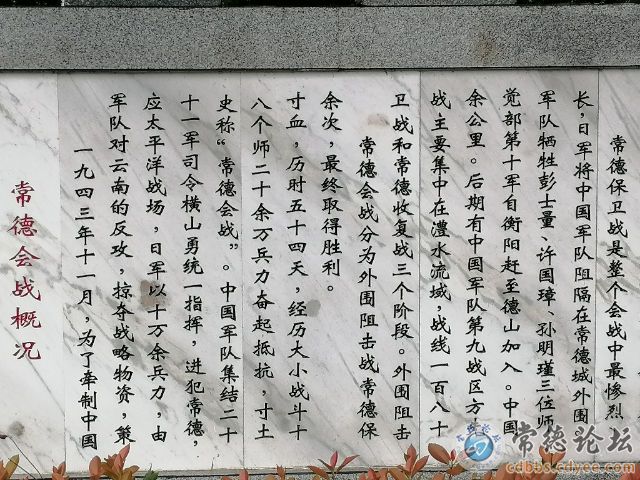 常德会战概况
一九四三年十一月，为了牵制中国
军队对云南的反攻，掠夺战略物资，策
应太平洋战场，日军以十万余兵力，由
十一军司令横山勇统一指挥，进犯常德，
史称“常德会战”。中国军队集结二十
八个师二十余万兵力奋起抵抗，寸土
寸血，历时五十四天，经历大小战斗十
余次，最终取得胜利。
常德会战分为外围阻击战常德保
卫战和常德收复战三个阶段。外围阻击
战主要集中在澧水流域，战线一百八十
余公里。后期有中国军队第九战区方
觉部第十军自衡阳赶至德山加入。中国
军队牺牲彭士量、许国璋、孙明瑾三位师
长，日军将中国军队阻隔在常德城外围
常德保卫战是整个会战中最惨烈
常德论坛
cdbbs.cdyee.com